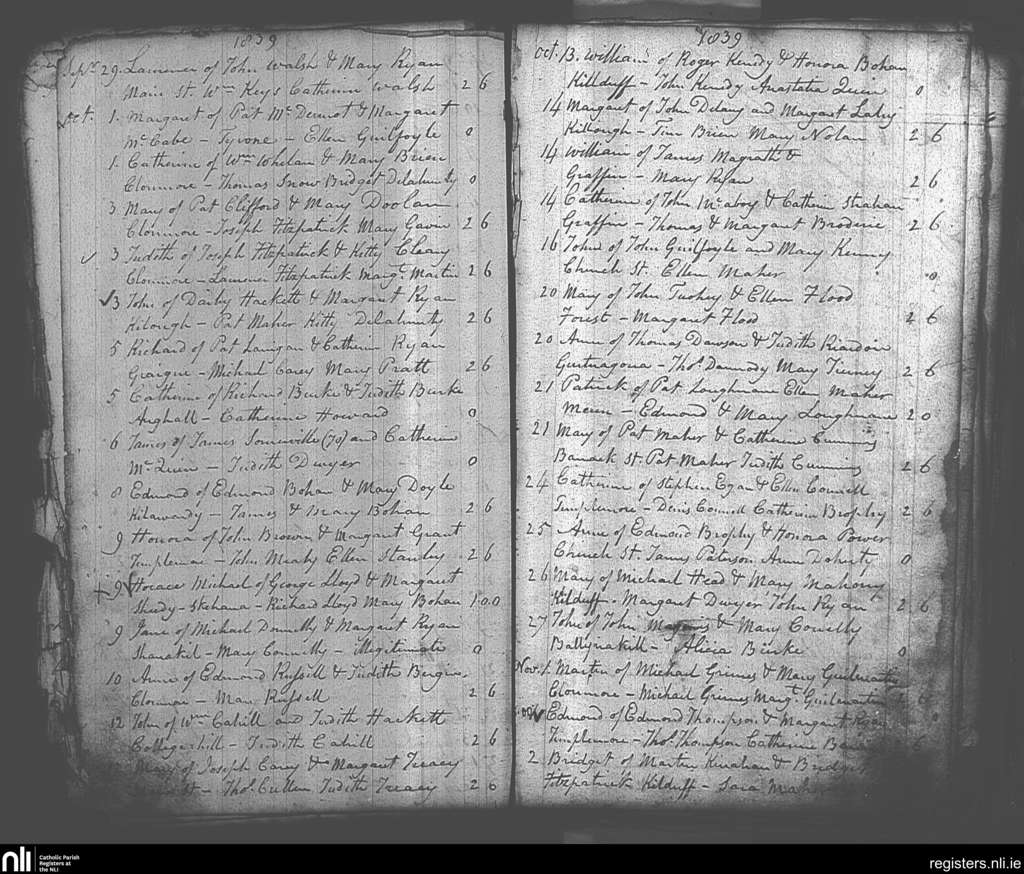 1839
Sepr 29. Laurence of John Walsh & Mary Ryan
Main St. Wm Keys Catherine Walsh 2 6
Oct. 1. Margaret of Pat Mc Dermot & Margaret
Mc Cabe - Tyrone - Ellen Guilfoyle 0
1. Catherine of Wm Whelan & Mary Brien
Clonmore - Thomas Snow Bridget Delahunty 0
3. Mary of Pat Clifford & Mary Doolan
Clonmore - Joseph Fitzpatrick Mary Gavin 2 6
3 Judith of Joseph Fitzpatrick & Kitty Cleary
Clonmore - Laurence Fitzpatrick Margt Martin 2 6
3 John of Darby Hackett & Margaret Ryan
Kilough - Pat Maher Kitty Delahunty 2 6
5 Richard of Pat Lanigan & Catherine Ryan
Graigue - Michael Carey Mary Pratt 2 6
5 Catherine of Richard Burke & Judith Burke
Aughall - Catherine Howard 0
6 James of James Somerville (70) and Catherine
Mc Quin - Judith Dwyer 0
8 Edmond of Edmond Bohan & Mary Doyle
Kilawardy - James & Mary Bohan 2 6
9 Honora of John Brown & Margaret Grant
Templemore - John Meahy Ellen Stanley 2 6
9 Horace Michael of George Lloyd & Margaret
Sheedy - Skehana - Richard Lloyd Mary Bohan 1.0.0
9 Jane of Michael Donnelly & Margaret Ryan
Shanakil - Mary Connelly - Illegitimate 0
10 Anne of Edmond Russill & Judith Bergin
Clonmore - Mary Russell 2 6
12 John of Wm Cahill and Judith Hackett
College hill - Judith Cahill 2 6
Mary of Joseph Carey & Margaret Treacy
St - Thos Cullen Judith Treacy 2 6
1839
Oct. 13. William of Roger Kenedy & Honora Bohan
Killduff - John Kenedy Anastatia Quinn 0
14 Margaret of John Delany and Margaret Lahy
Killough - Tim Brien Mary Nolan 2 6
14 William of James Magrath &
Graffin - Mary Ryan 2 6
14 Catherine of John Mc avoy & Catherine Strahan
Graffin - Thomas & Margaret Broderic 2 6
16 John of John Guilfoyle and Mary Kenny
Church St. Ellen Maher 0
20 Mary of John Tuohey & Ellen Flood
Forest - Margaret Flood 2 6
20 Anne of Thomas Dawson & Judith Riordon
Gurtnagoona - Thos Dermody Mary Tierney 2 6
21 Patrick of Pat Loughnane Ellen Maher
- Edmond & Mary Loughnane 2 0
21 Mary of Pat Maher & Catherine Cummins
Barrack St. Pat Maher Judith Cummins 2 6
24 Catherine of Stephen Egan & Ellen Connell
Templemore - Denis Connell Catherine Brophy 2 6
25 Anne of Edmond Brophy & Honora Power
Church St. James Paterson Anne Doherty 0
26 Mary of Michael Head & Mary Mahony
Kilduff - Margaret Dwyer John Ryan 2 6
27 John of John & Mary Connelly
Ballynakill - Alicia Burke 0
Nov. 1. Martin of Michael Grimes & Mary
Clonmore - Michael Grimes Margt
Edmond of Edmond Thompson & Margaret Ryan
Templemore - Thos Thompson Catherine 6
2 Bridget of Martin Kinahan & Bridget
Fitzpatrick Kilduff - Sara Maher
nli Catholic Parish
Registers at
the NLI
registers.nli.ie